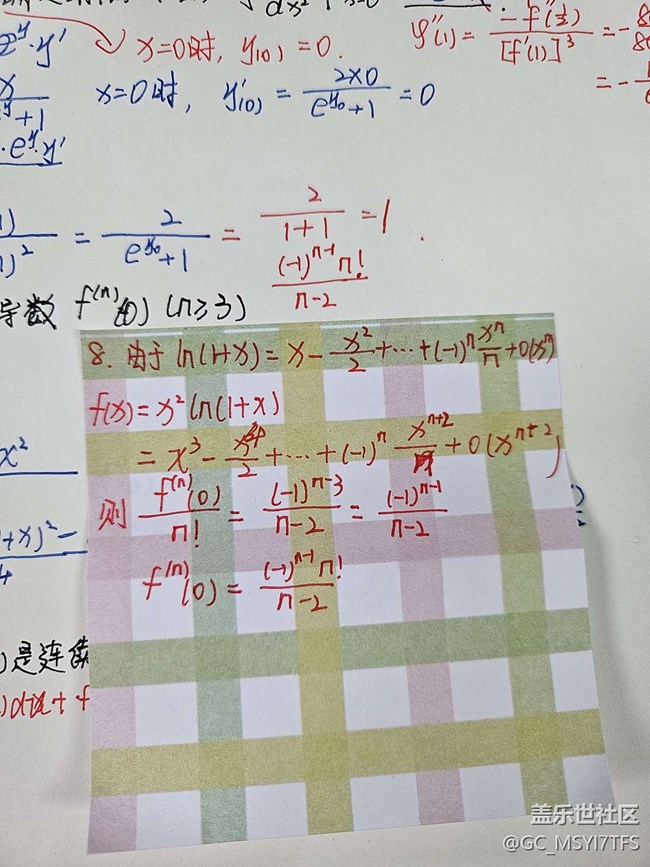 dx² x=0
e^y·y'
x=0时, y(0)=0.
φ''(1)= -f''(½)/[f'(1)]³ = -
= -
x=0时, y'(0) = 2×0/(e^y₀+1) = 0
·e^y·y'
= 2/(e^y₀+1) = 2/(1+1) = 1.
(-1)^(n-1) n!/(n-2)
导数 f^(n)(0) (n≥3)
8. 由于 ln(1+x) = x - x²/2 + ··· + (-1)^n x^n/n + o(x^n)
f(x) = x² ln(1+x)
= x³ - x⁴/2 + ··· + (-1)^n x^(n+2)/n + o(x^(n+2))
x²
则 f^(n)(0)/n! = (-1)^(n-3)/(n-2) = (-1)^(n-1)/(n-2)
+x)² -
4
f^(n)(0) = (-1)^(n-1) n!/(n-2)
)是连续
盖乐世社区
@GC_MSYI7TFS